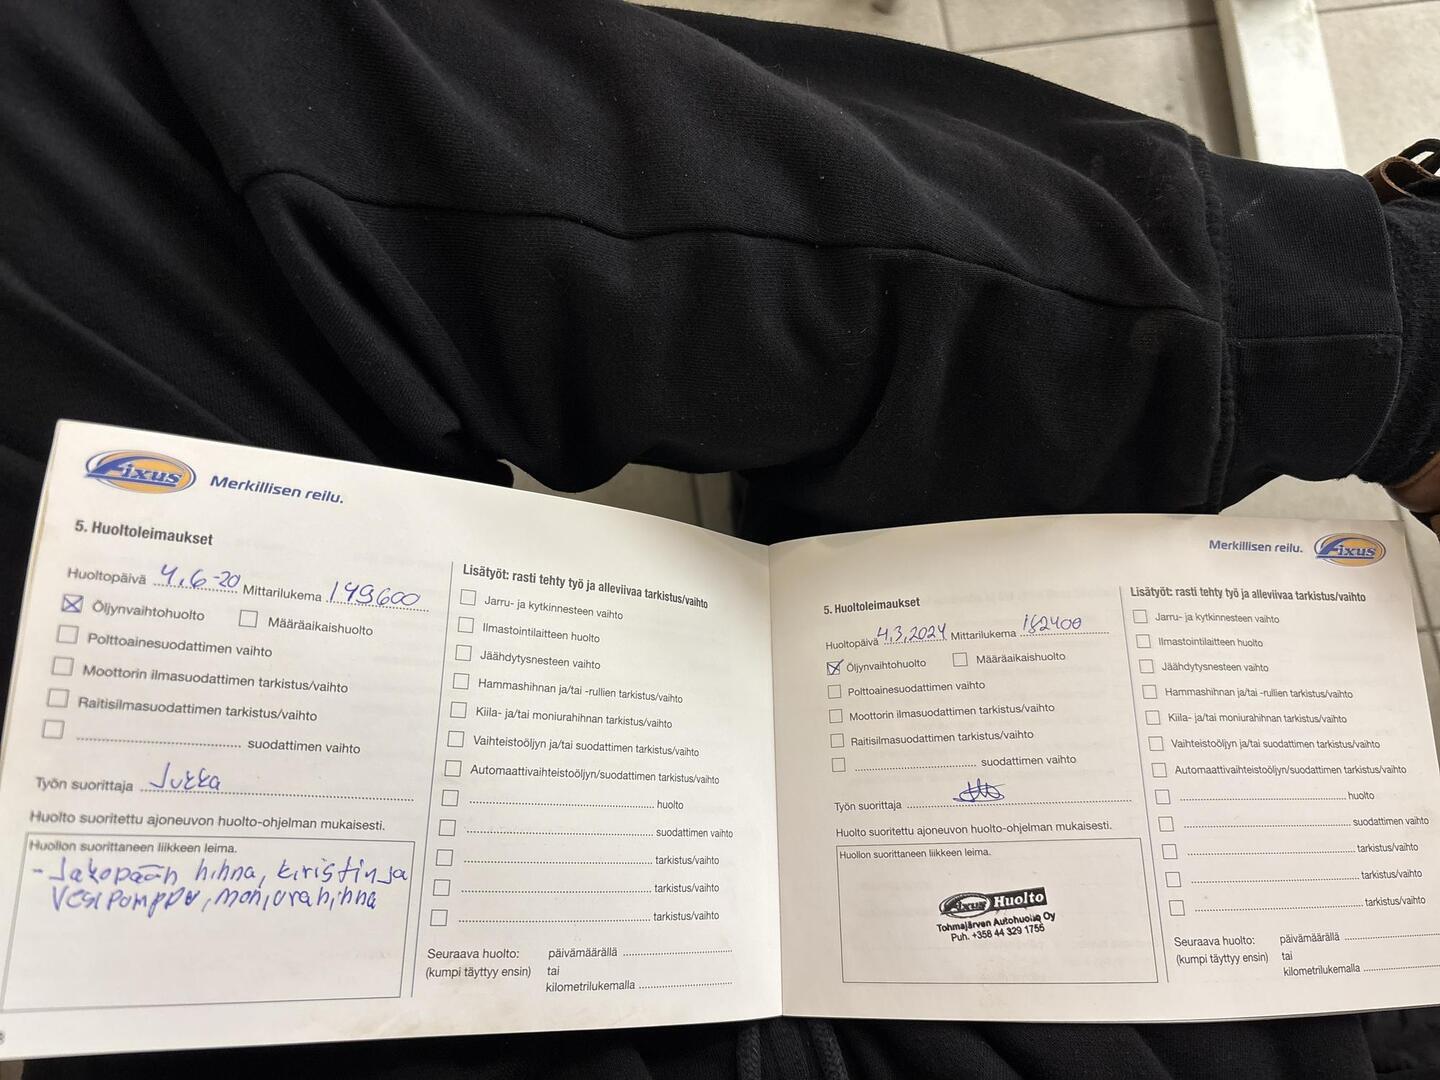 Fixus Merkillisen reilu.
5. Huoltoleimaukset
Huoltopäivä 4.6-20 Mittarilukema 149600
Öljynvaihtohuolto Määräaikaishuolto
Polttoainesuodattimen vaihto
Moottorin ilmasuodattimen tarkistus/vaihto
Raitisilmasuodattimen tarkistus/vaihto
suodattimen vaihto
Työn suorittaja Jukka
Huolto suoritettu ajoneuvon huolto-ohjelman mukaisesti.
Huollon suorittaneen liikkeen leima.
- Jakopään hihna, kiristin ja
Vesipomppu, moniurahihna
Lisätyöt: rasti tehty työ ja alleviivaa tarkistus/vaihto
Jarru- ja kytkinnesteen vaihto
Ilmastointilaitteen huolto
Jäähdytysnesteen vaihto
Hammashihnan ja/tai -rullien tarkistus/vaihto
Kiila- ja/tai moniurahihnan tarkistus/vaihto
Vaihteistoöljyn ja/tai suodattimen tarkistus/vaihto
Automaattivaihteistoöljyn/suodattimen tarkistus/vaihto
huolto
suodattimen vaihto
tarkistus/vaihto
tarkistus/vaihto
tarkistus/vaihto
Seuraava huolto: päivämäärällä
(kumpi täyttyy ensin) tai
kilometrilukemalla
Merkillisen reilu. Fixus
5. Huoltoleimaukset
Huoltopäivä 4.3.2024 Mittarilukema 182400
Öljynvaihtohuolto Määräaikaishuolto
Polttoainesuodattimen vaihto
Moottorin ilmasuodattimen tarkistus/vaihto
Raitisilmasuodattimen tarkistus/vaihto
suodattimen vaihto
Työn suorittaja
Huolto suoritettu ajoneuvon huolto-ohjelman mukaisesti.
Huollon suorittaneen liikkeen leima.
Fixus Huolto
Tohmajärven Autohuolto Oy
Puh. +358 44 329 1755
Lisätyöt: rasti tehty työ ja alleviivaa tarkistus/vaihto
Jarru- ja kytkinnesteen vaihto
Ilmastointilaitteen huolto
Jäähdytysnesteen vaihto
Hammashihnan ja/tai -rullien tarkistus/vaihto
Kiila- ja/tai moniurahihnan tarkistus/vaihto
Vaihteistoöljyn ja/tai suodattimen tarkistus/vaihto
Automaattivaihteistoöljyn/suodattimen tarkistus/vaihto
huolto
suodattimen vaihto
tarkistus/vaihto
tarkistus/vaihto
tarkistus/vaihto
Seuraava huolto: päivämäärällä
(kumpi täyttyy ensin) tai
kilometrilukemalla